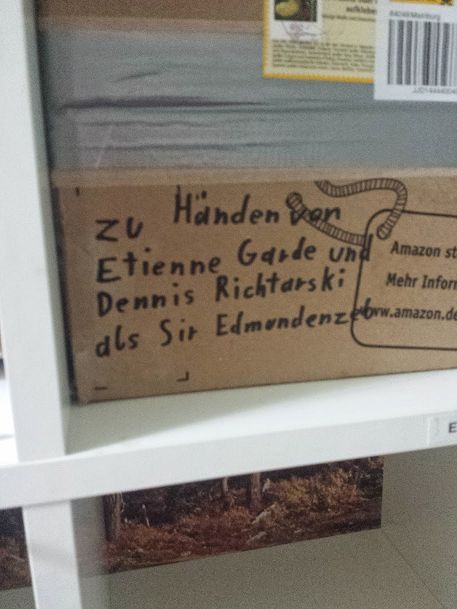 aufklebe
84048 Mainburg
JJD1444004
zu Händen von
Etienne Garde und
Dennis Richtarski
als Sir Edmundenzeb
Amazon st
Mehr Inforn
www.amazon.de
E